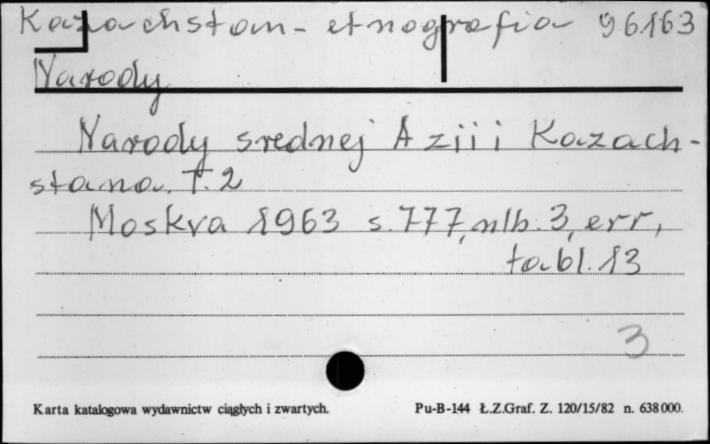 Kazachstan - etnografia 96163
Narody
Narody srednej Azii i Kazach-
stana. T. 2
Moskva 1963 s. 777, nlb. 3, err,
tabl. 13
3
Karta katalogowa wydawnictw ciągłych i zwartych. Pu-B-144 Ł.Z.Graf. Z. 120/15/82 n. 638000.